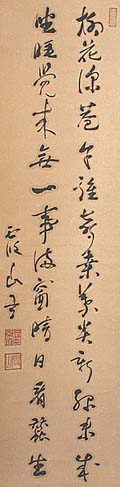 柳花深巷午雞聲桑葉尖新綠未成
坐睡覺来無一事滿窗晴日看蠶生